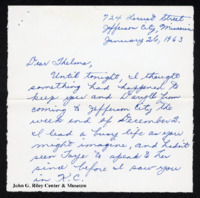 724 Locust Street
Jefferson City, Missouri
January 26, 1963
Dear Thelma,
Until tonight, I thought
something had happened to
keep you and Daryle from
coming to Jefferson City the
week end of December 2.
I lead a busy life as you
might imagine, and hadn't
seen Faye to speak to her
since before I saw you
in K.C.
John G. Riley Center & Museum